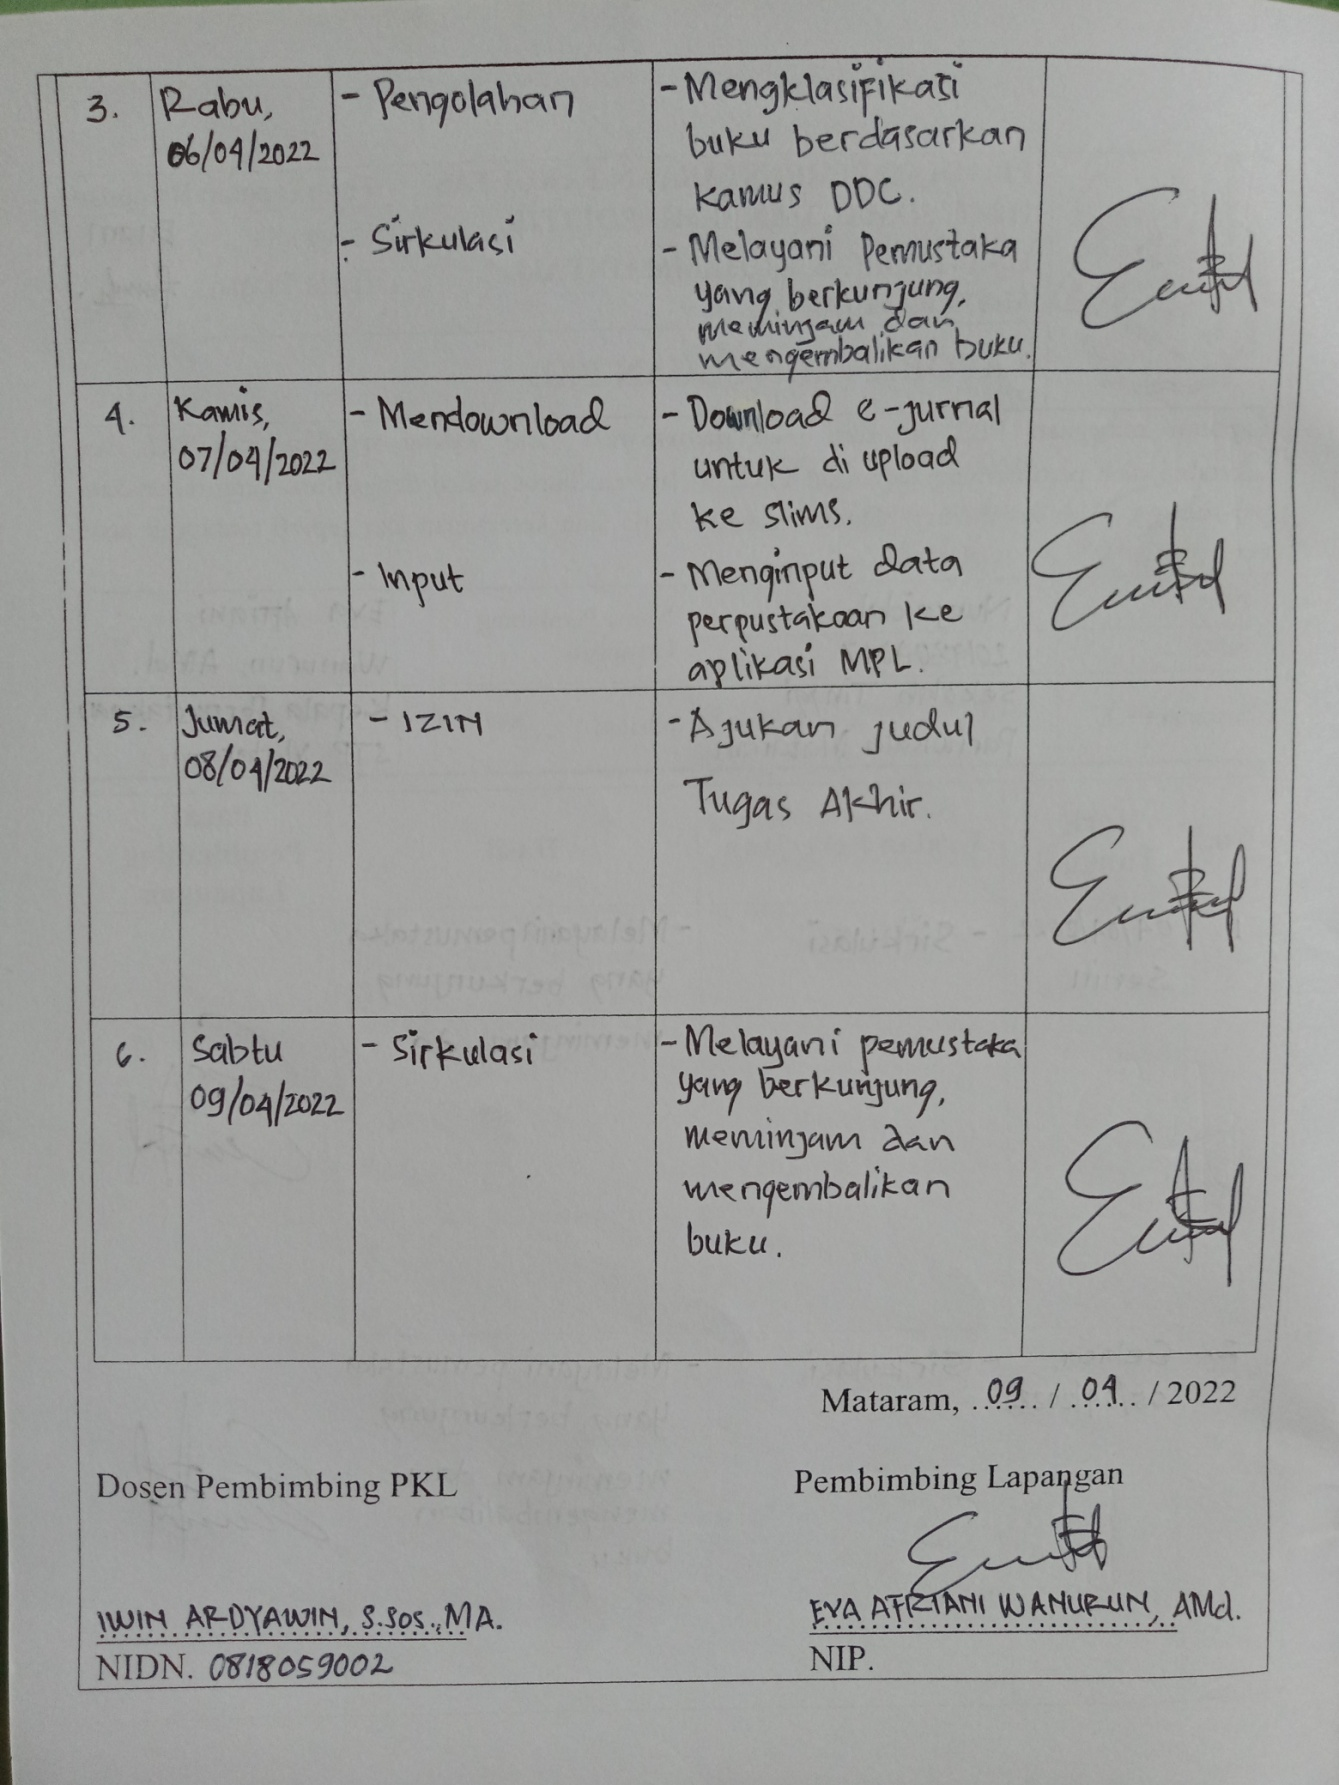 3.
Rabu,
06/04/2022
- Pengolahan
- Sirkulasi
- Mengklasifikasi
buku berdasarkan
kamus DDC.
- Melayani Pemustaka
yang berkunjung,
meminjam dan
mengembalikan buku.
4.
Kamis,
07/04/2022
- Mendownload
- Input
- Download e-jurnal
untuk di upload
ke slims.
- Menginput data
perpustakaan ke
aplikasi MPL.
5.
Jumat,
08/04/2022
- IZIN
- Ajukan judul
Tugas Akhir.
6.
Sabtu
09/04/2022
- Sirkulasi
- Melayani pemustaka
yang berkunjung,
meminjam dan
mengembalikan
buku.
Mataram, 09 / 04 / 2022
Dosen Pembimbing PKL
Pembimbing Lapangan
IWIN ARDYAWIN, S.Sos., MA.
EVA AFRIANI WANURUN, AMd.
NIDN. 0818059002
NIP.